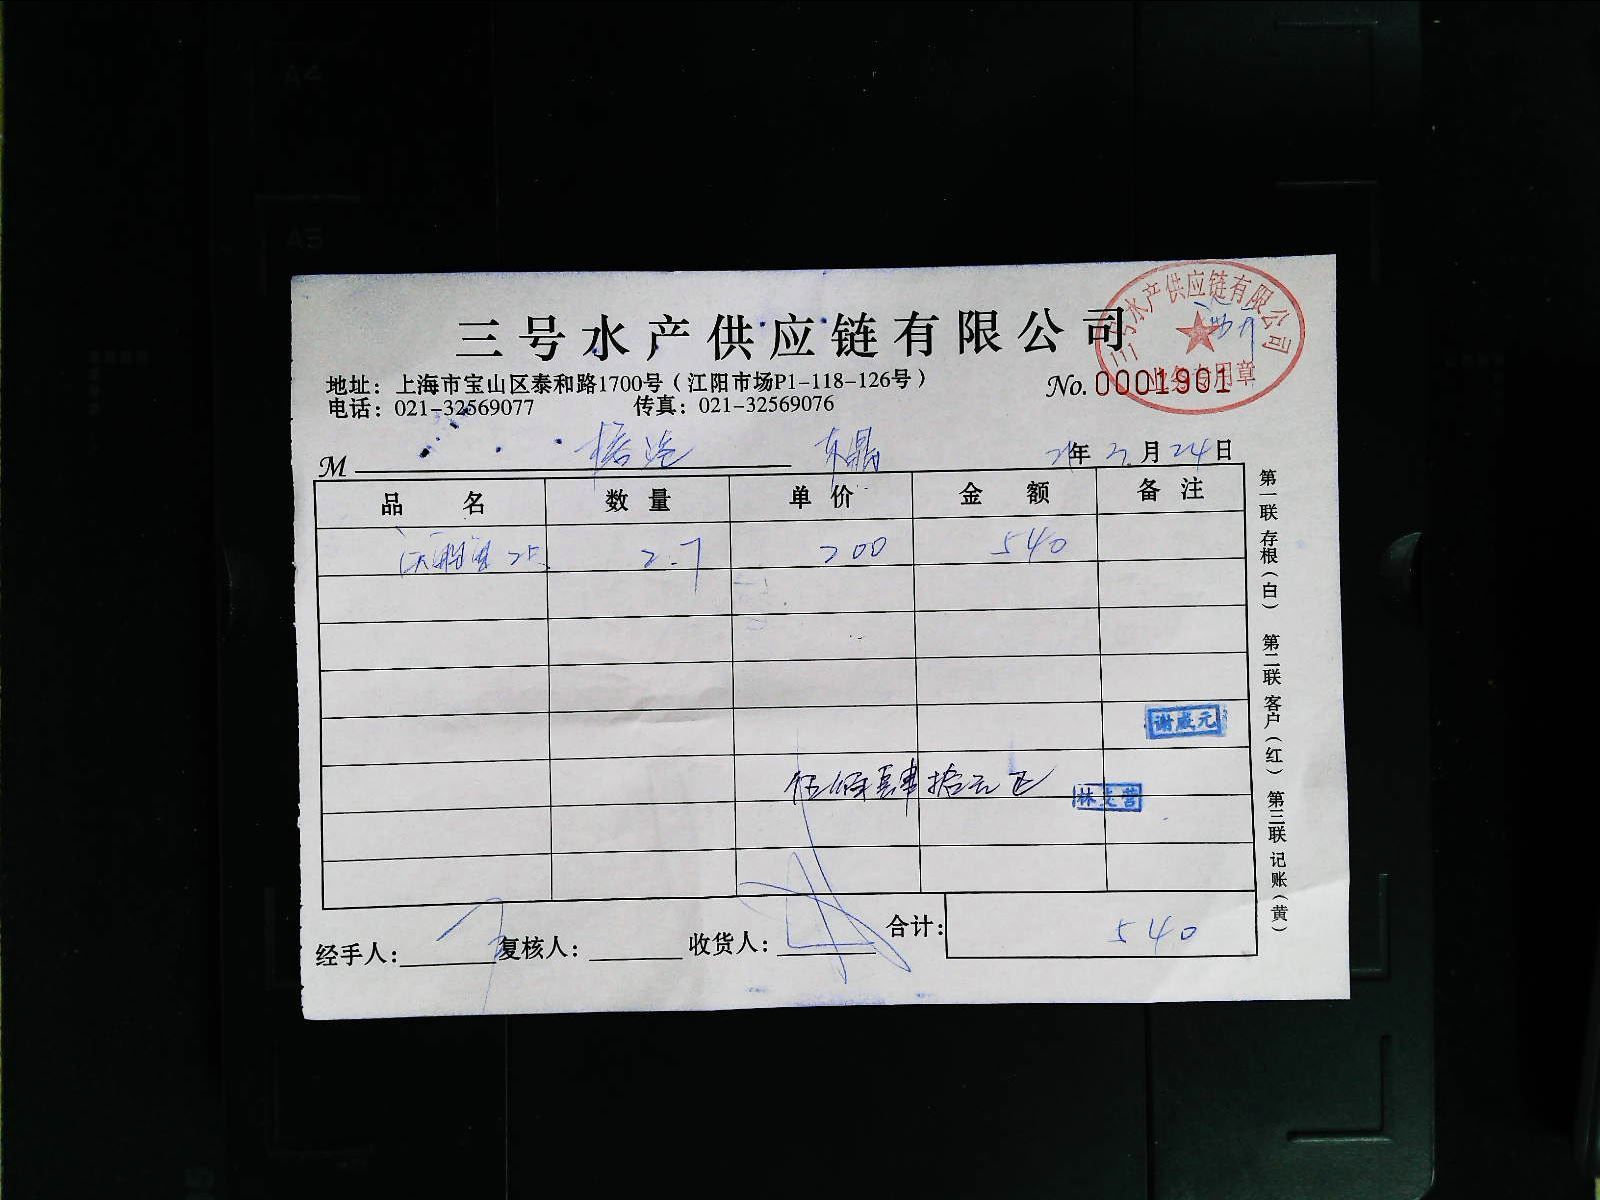 三号水产供应链有限公司
地址：上海市宝山区泰和路1700号（江阳市场P1-118-126号）
No.0001901
电话：021-32569077 传真：021-32569076
三号水产供应链有限公司
业务专用章
M 东鼎 21年2月24日
品名 数量 单价 金额 备注
2.7 200 540
谢成元
伍佰肆拾元正
林支营
经手人： 复核人： 收货人： 合计：540
第一联 存根（白） 第二联 客户（红） 第三联 记账（黄）
A4
A5